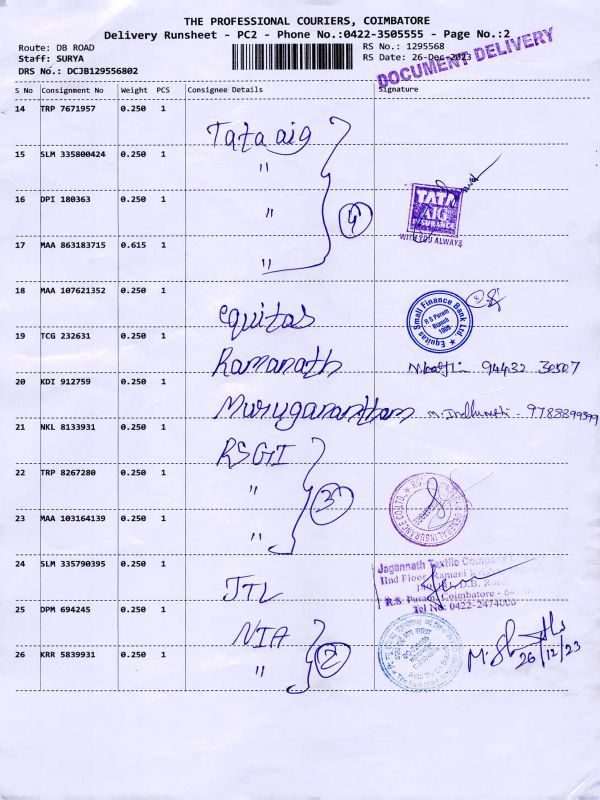 THE PROFESSIONAL COURIERS, COIMBATORE
Delivery Runsheet - PC2 - Phone No.:0422-3505555 - Page No.:2
Route: DB ROAD
Staff: SURYA
DRS No.: DCJB129556802
RS No.: 1295568
RS Date: 26-Dec-2023
DOCUMENT DELIVERY
S No Consignment No Weight PCS Consignee Details Signature
14 TRP 7671957 0.250 1 Tata aig
15 SLM 335800424 0.250 1 "
16 DPI 180363 0.250 1 "
4
TATA
AIG
INSURANCE
WITH YOU ALWAYS
17 MAA 863183715 0.615 1 "
18 MAA 107621352 0.250 1 equitas
Equitas Small Finance Bank Ltd
R S Puram
Branch
1009
19 TCG 232631 0.250 1 Ramanath
94432 30507
20 KDI 912759 0.250 1 Muruganantham
9788899399
21 NKL 8133931 0.250 1 RSGI
22 TRP 8267280 0.250 1 "
3
GENERAL INSURANCE CO LTD.
23 MAA 103164139 0.250 1 "
24 SLM 335790395 0.250 1 JTL
Jagannath Textile Company
IInd Floor, Ramani
D.B. Road
R.S. Puram, Coimbatore - 64
Tel No: 0422-2474000
25 DPM 694245 0.250 1 NIA
26 KRR 5839931 0.250 1 "
2
26/12/23